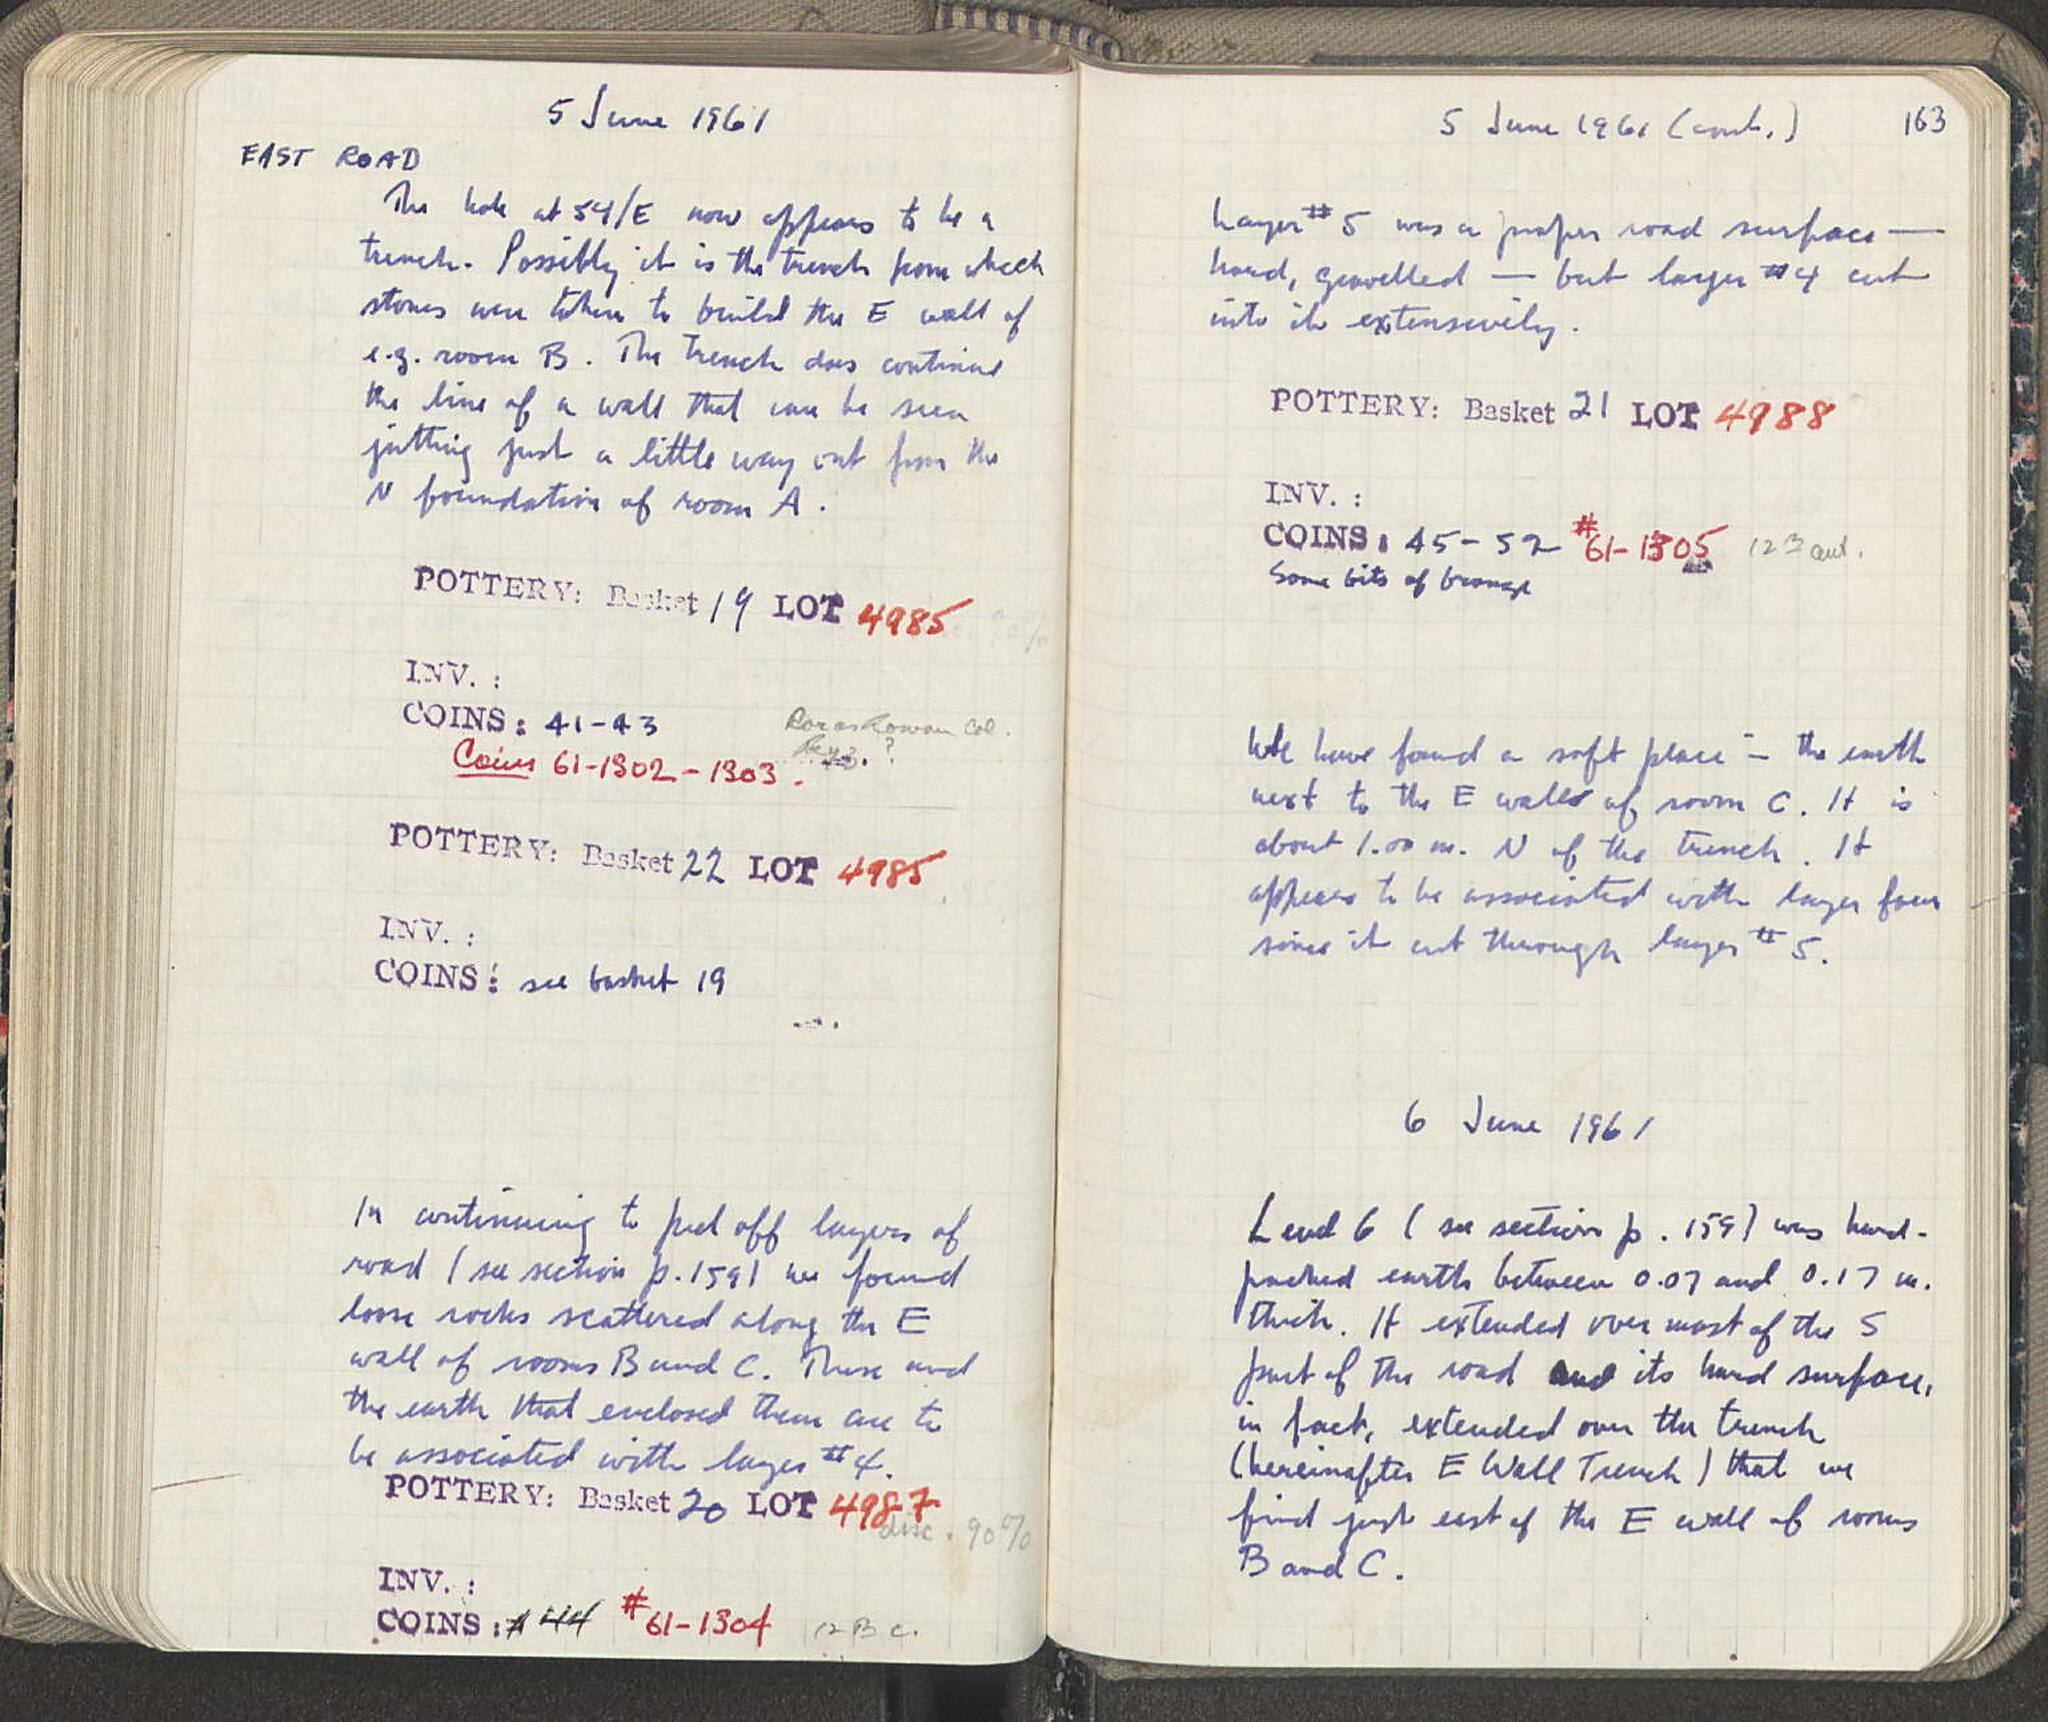 5 June 1961
EAST ROAD
The hole at 54/E now appears to be a
trench. Possibly it is the trench from which
stones were taken to build the E wall of
e.g. room B. The trench does continue
the line of a wall that can be seen
jutting just a little way out from the
N foundation of room A.
POTTERY: Basket 19 LOT 4985
INV. :
COINS: 41-43
Coins 61-1302-1303.
POTTERY: Basket 22 LOT 4985
INV. :
COINS: see basket 19
In continuing to peel off layers of
road (see section p. 159) we found
loose rocks scattered along the E
wall of rooms B and C. These and
the earth that enclosed them are to
be associated with layer #4.
POTTERY: Basket 20 LOT 4987
disc. 90%
INV. :
COINS: #44 #61-1304 12 B C.
5 June 1961 (cont.)
163
Layer #5 was a proper road surface —
hard, gravelled — but layer #4 cut
into it extensively.
POTTERY: Basket 21 LOT 4988
INV. :
COINS: 45-52 #61-1305
Some bits of bronze
We have found a soft place - the earth
next to the E walls of room C. It is
about 1.00 m. N of the trench. It
appears to be associated with layer four
since it cut through layer #5.
6 June 1961
Level 6 (see section p. 159) was hard-
packed earth between 0.07 and 0.17 m.
thick. It extended over most of the S
part of the road and its hard surface,
in fact, extended over the trench
(hereinafter E Wall Trench) that we
find just east of the E wall of rooms
B and C.